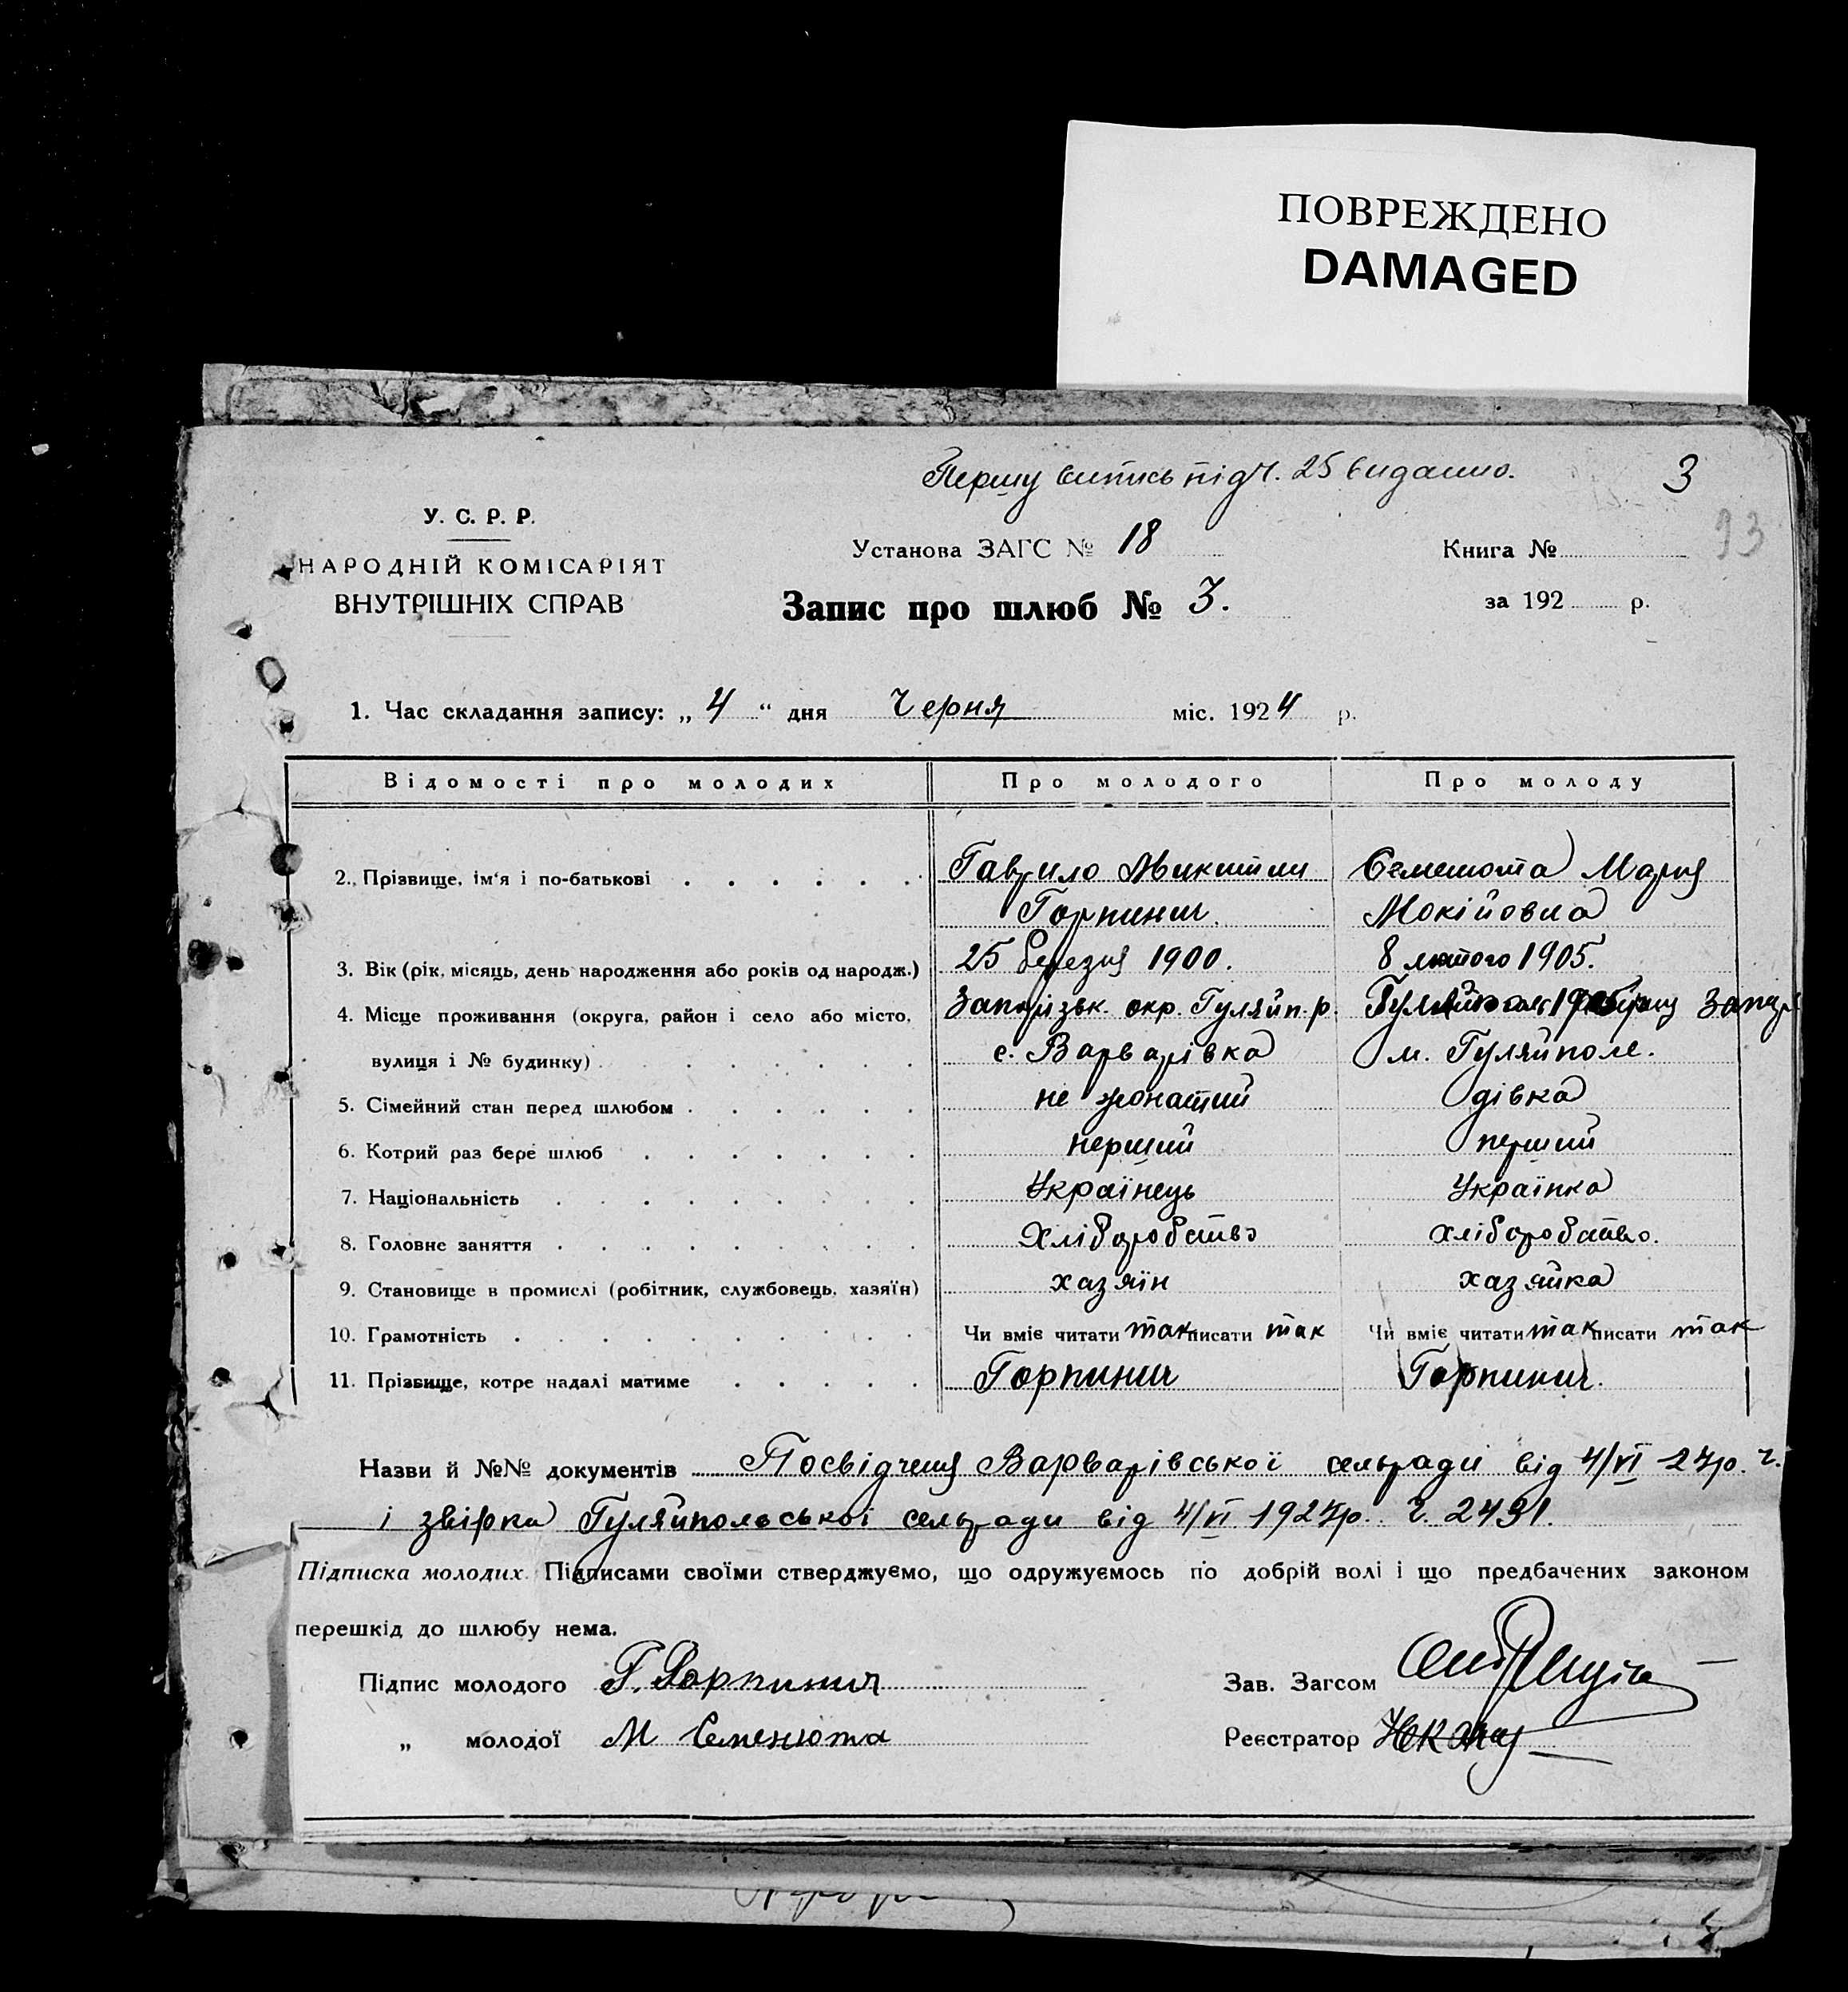 ПОВРЕЖДЕНО
DAMAGED
Першу витись під ч. 25 видано.
3
93
У. С. Р. Р.
НАРОДНІЙ КОМІСАРІЯТ
ВНУТРІШНІХ СПРАВ
Установа ЗАГС № 18
Книга №
Запис про шлюб № 3.
за 192 р.
1. Час складання запису: „ 4 “ дня Черня міс. 1924 р.
Відомості про молодих Про молодого Про молоду
2. Прізвище, ім'я і по-батькові Гаврило Микитич Семенюта Мария
Горпинич. Мокійовна
3. Вік (рік, місяць, день народження або років од народж.) 25 березня 1900. 8 лютого 1905.
4. Місце проживання (округа, район і село або місто, Запорізьк. окр. Гуляйп. р.
вулиця і № будинку) с. Варварівка м. Гуляйполе.
5. Сімейний стан перед шлюбом не жонатий дівка
6. Котрий раз бере шлюб перший перший
7. Національність Українець Українка
8. Головне заняття Хліборобство хліборобство.
9. Становище в промислі (робітник, службовець, хазяїн) хазяїн хазяйка
10. Грамотність Чи вміє читати так писати так Чи вміє читати так писати так
11. Прізвище, котре надалі матиме Горпинич Горпинич.
Назви й №№ документів Посвідченя Варварівської сельради від 4/VI 24р. ч.
і звірка Гуляйпольської сельради від 4/VI 1924р. ч. 2491.
Підписка молодих. Підписами своїми стверджуємо, що одружуємось по добрій волі і що предбачених законом
перешкід до шлюбу нема.
Підпис молодого Г. Горпинич
Зав. Загсом
„ молодої М Семенюта
Реєстратор